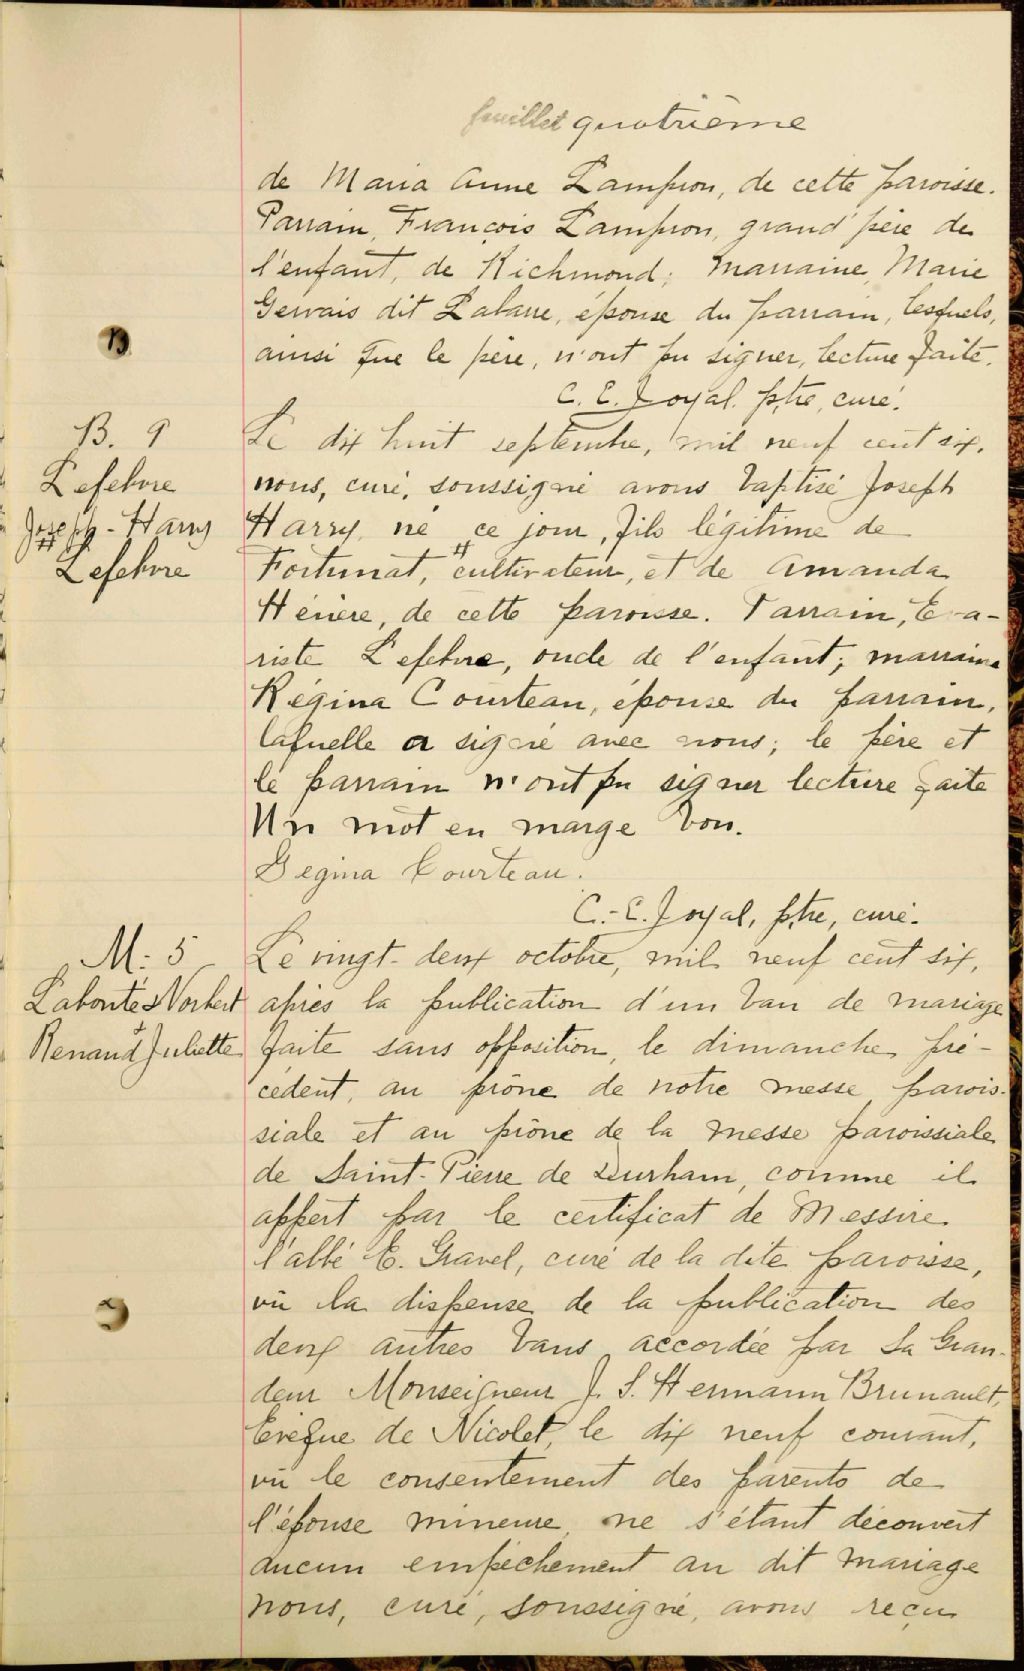 feuillet quatrième
de Maria Anne Lampron, de cette paroisse.
Parrain, François Lampron, grand'père de
l'enfant, de Richmond; marraine, Marie
Gervais dit Labarre, épouse du parrain, lesquels,
ainsi que le père, n'ont pu signer, lecture faite.
C. E. Joyal. ptre, curé.
B. 9
Lefebvre
Joseph-Harry
# Lefebvre
Le dix huit septembre, mil neuf cent six,
nous, curé, soussigné avons baptisé Joseph
Harry, né ce jour, fils légitime de
Fortunat, # cultivateur, et de Amanda
Hénère, de cette paroisse. Parrain, Eva-
riste Lefebvre, oncle de l'enfant; marraine
Régina Courteau, épouse du parrain,
laquelle a signé avec nous; le père et
le parrain n'ont pu signer lecture faite
Un mot en marge bon.
Regina Courteau.
C.-E. Joyal, ptre, curé.
M: 5
Labonté Norbert
&
Renaud Juliette
Le vingt-deux octobre, mil neuf cent six,
après la publication d'un ban de mariage
faite sans opposition, le dimanche pré-
cédent, au prône de notre messe parois-
siale et au prône de la messe paroissiale
de Saint-Pierre de Durham, comme il
appert par le certificat de Messire
l'abbé E. Gravel, curé de la dite paroisse,
vu la dispense de la publication des
deux autres bans accordée par Sa Gran-
deur Monseigneur J. S. Hermann Brunault,
Evêque de Nicolet, le dix neuf courant,
vu le consentement des parents de
l'épouse mineure, ne s'étant découvert
aucun empêchement au dit mariage
nous, curé, soussigné, avons reçu